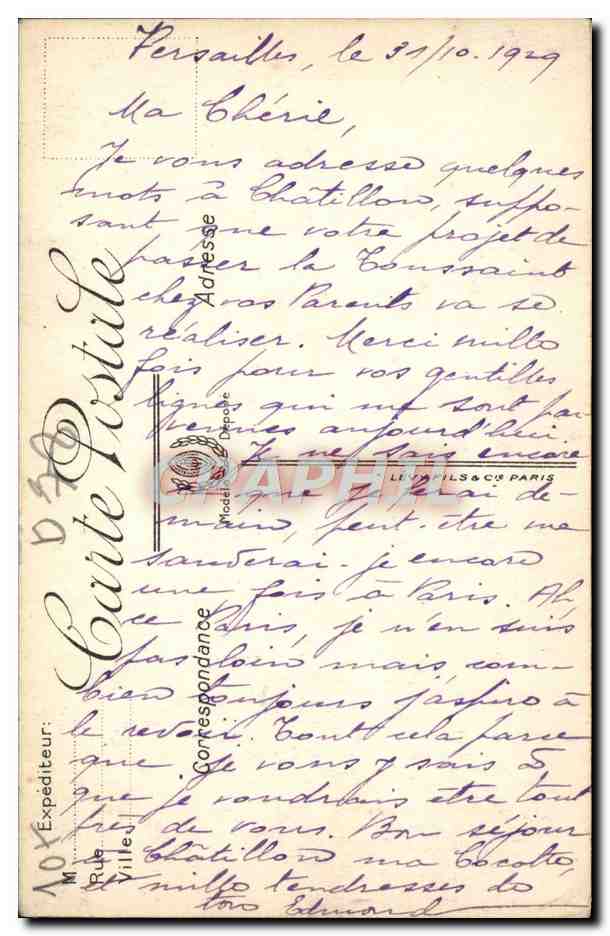 Versailles, le 31/10.1929
Ma Chérie,
Je vous adresse quelques
mots à Châtillon, suppo-
sant que votre projet de
passer la Toussaint
chez vos Parents va se
réaliser. Merci mille
fois pour vos gentilles
lignes qui me sont par
venues aujourd'hui.
Je ne sais encore
ce que je ferai de-
main, peut-être me
sauverai-je encore
une fois à Paris. Ah,
ce Paris, je n'en suis
pas loin mais com-
bien toujours j'aspire à
le revoir. Tout cela parce
que je vous y sais &
que je voudrais être tout
près de vous. Bon séjour
à Châtillon ma Cocotte,
et mille tendresses de
ton Edmond
Carte Postale
Adresse
Correspondance
Modèle Déposé
LEVY FILS & Cie PARIS
Expéditeur:
M
Rue
Ville
D 70
10x
CRAPHIL